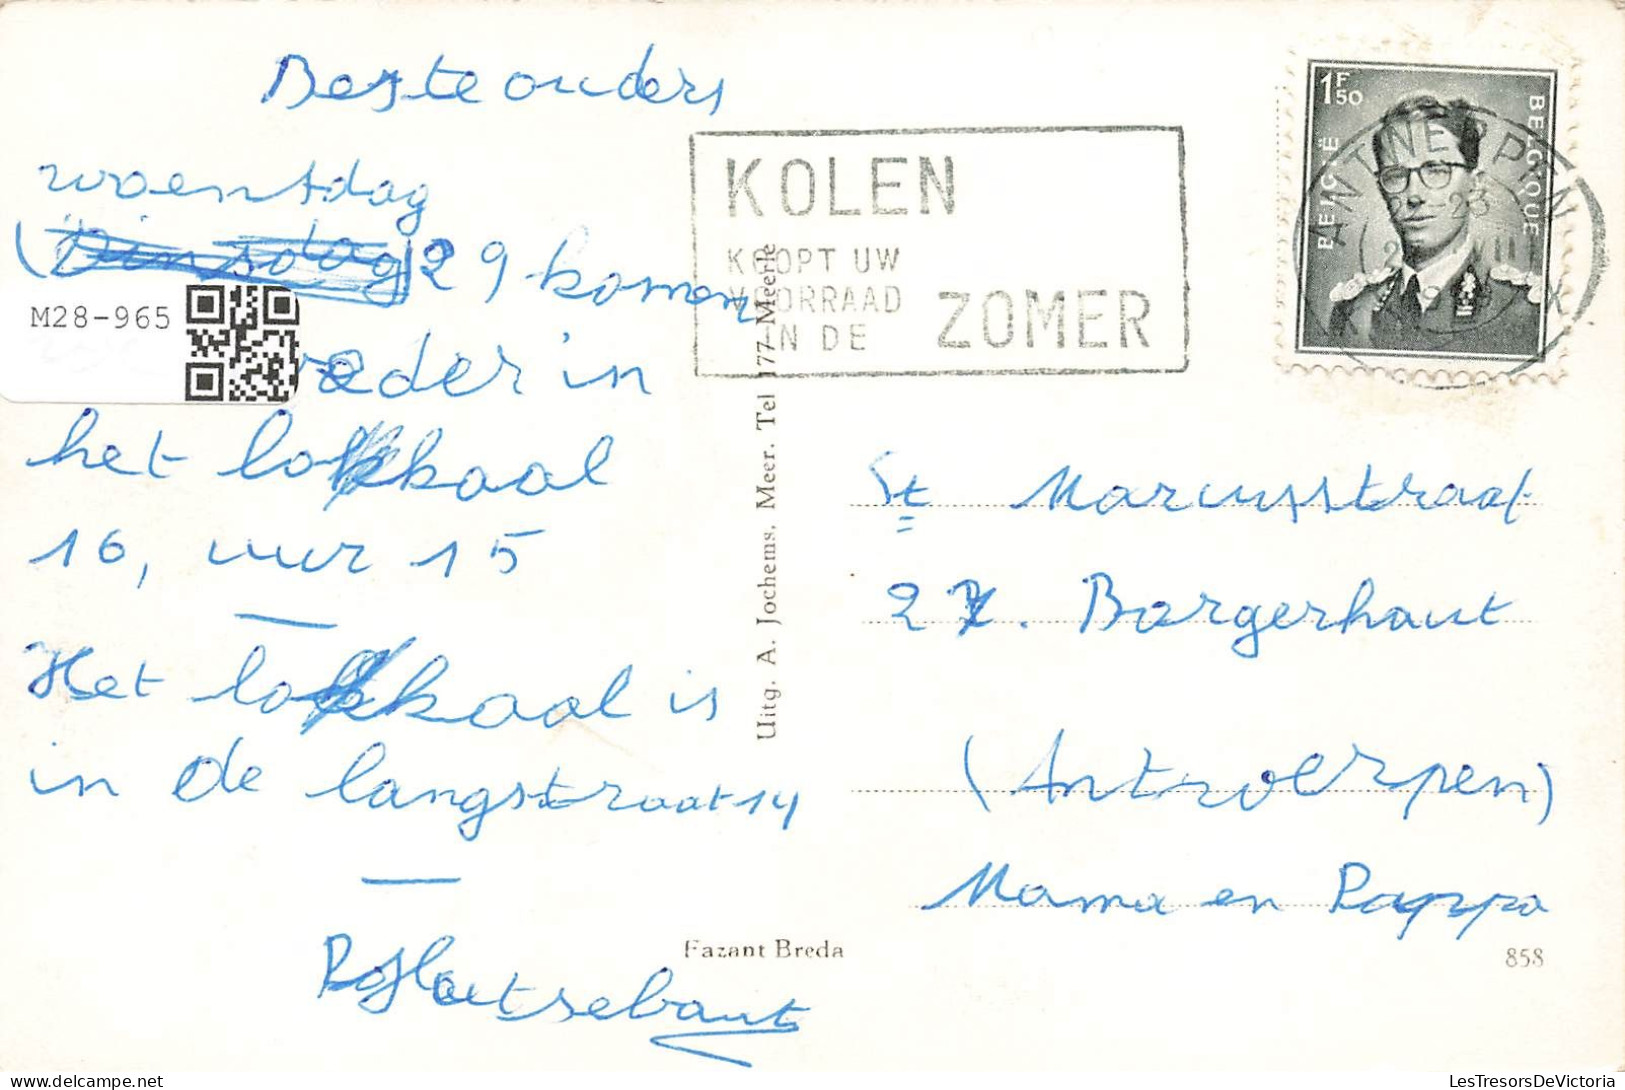 Beste ouders
woenstag
(Dinsdag) 29 komen
weder in
het lokkaal
16, uur 15
Het lokkaal is
in de langstraat 14
M28-965
KOLEN
KOOPT UW
VOORRAAD
IN DE
ZOMER
1F50
BELGIË
BELGIQUE
ANTWERPEN
Uitg. A. Jochems. Meer. Tel 177 Meerle
St Marcusstraat
27. Borgerhaut
(Antwerpen)
Mama en Pappa
Fazant Breda
858
LesTresorsDeVictoria